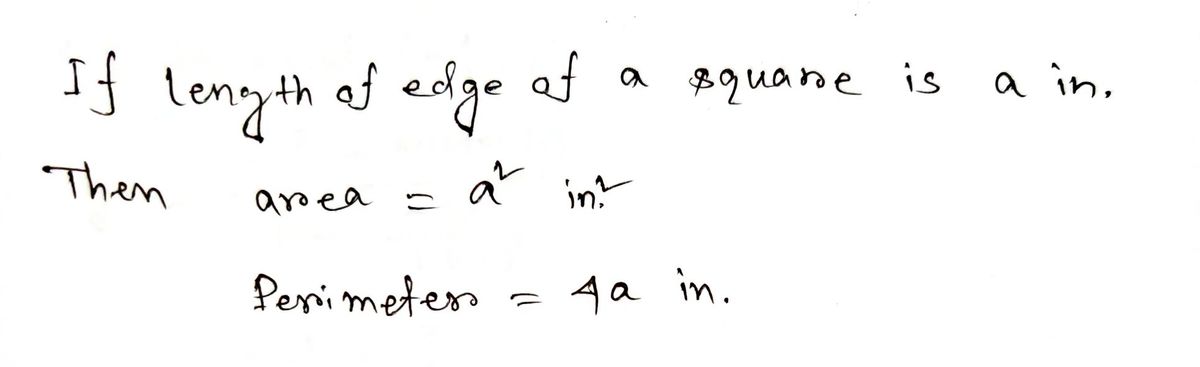 If length of edge of a square is a in.
Then area = a² in.²
Perimeter = 4a in.